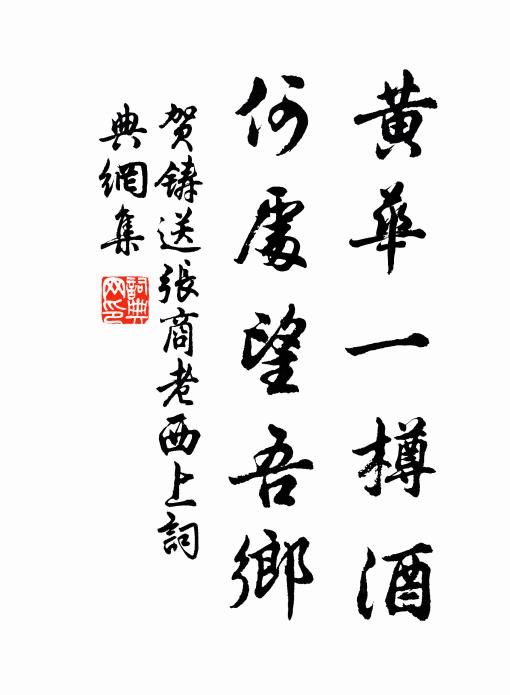 黄華一樽酒
何處望吾鄉
賀鑄送張商老西上詞
典網集
詞典
网印